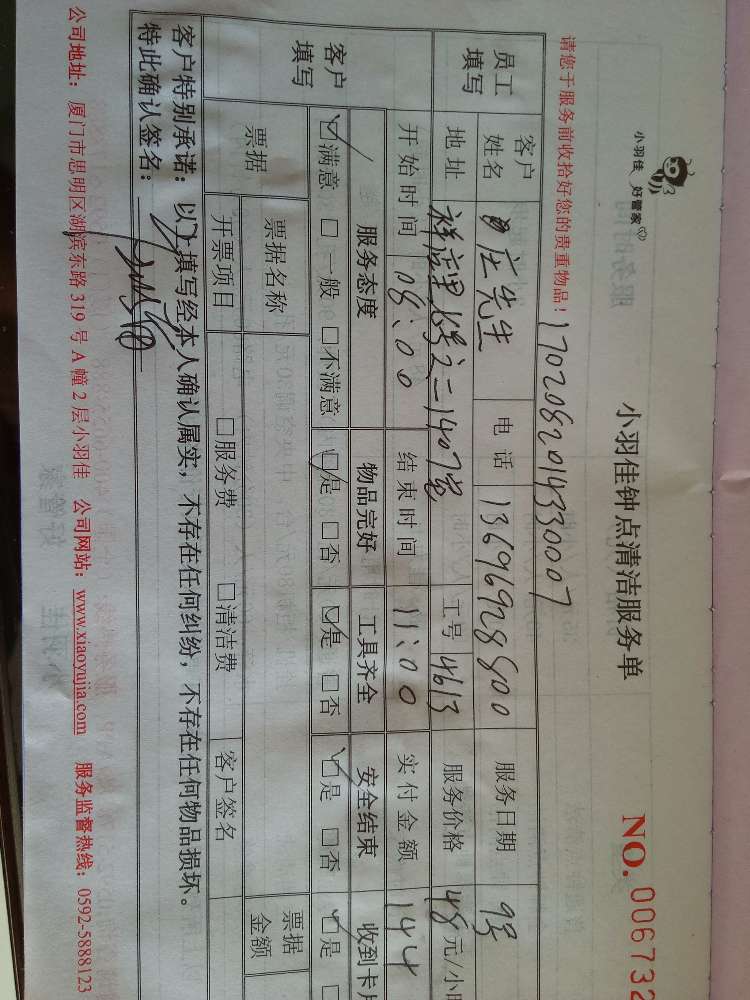 小羽佳 好管家
小羽佳钟点清洁服务单
NO.006732
请您于服务前收拾好您的贵重物品！
1702082014330007
员工填写
客户姓名 庄先生 电话 13696928800 服务日期 9号
地址 祥店里 之二1407室 工号 4613 服务价格 48元/小时
客户填写
开始时间 08:00 结束时间 11:00 实付金额 144
服务态度 物品完好 工具齐全 安全结束 收到卡
☑满意 □一般 □不满意 ☑是 □否 ☑是 □否 ☑是 □否 ☑是 □
票据 票据名称 票据金额
开票项目 □服务费 □清洁费 客户签名
客户特别承诺：以上填写经本人确认属实，不存在任何纠纷，不存在任何物品损坏。
特此确认签名：
公司地址：厦门市思明区湖滨东路319号A幢2层小羽佳 公司网站：www.xiaoyujia.com 服务监督热线：0592-5888123